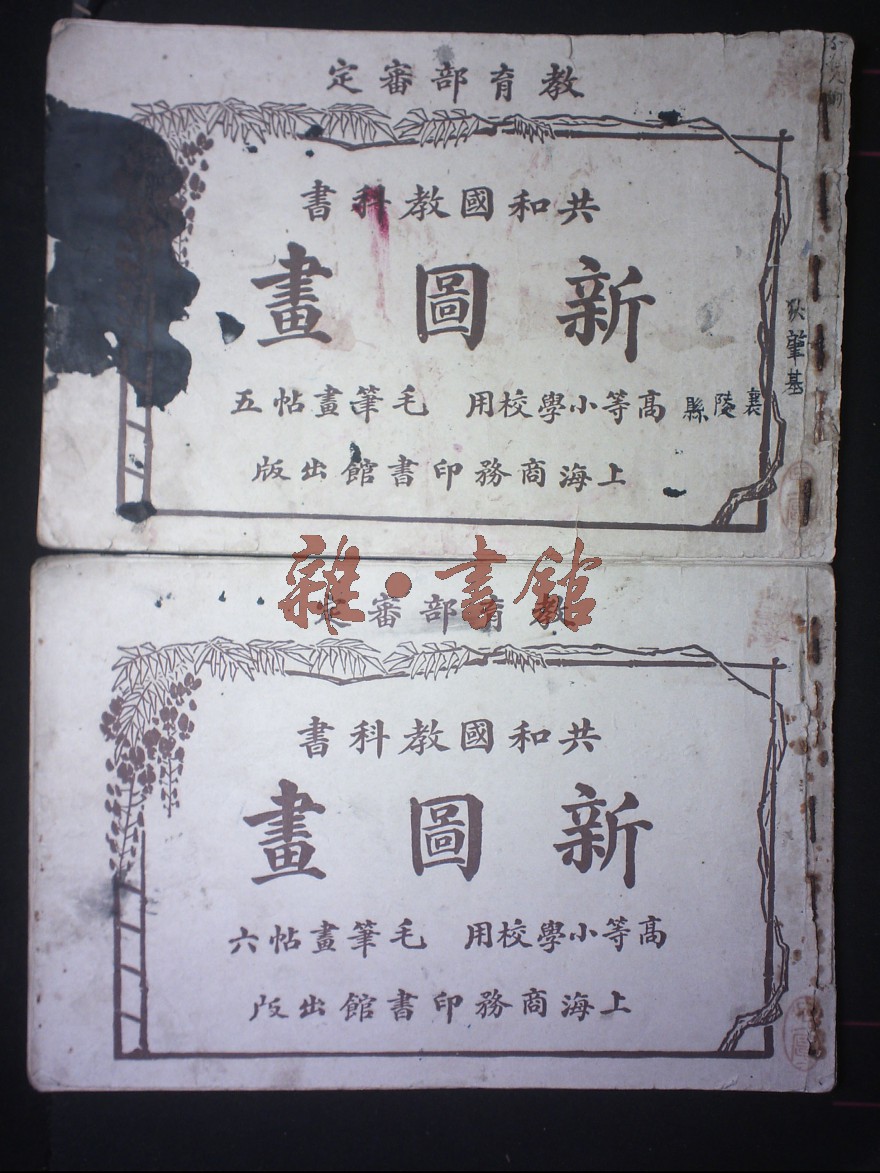 教育部審定
共和國教科書
新圖畫
高等小學校用 毛筆畫帖五
上海商務印書館出版
襄陵縣
狄肇基
雜·書館
教育部審定
共和國教科書
新圖畫
高等小學校用 毛筆畫帖六
上海商務印書館出版